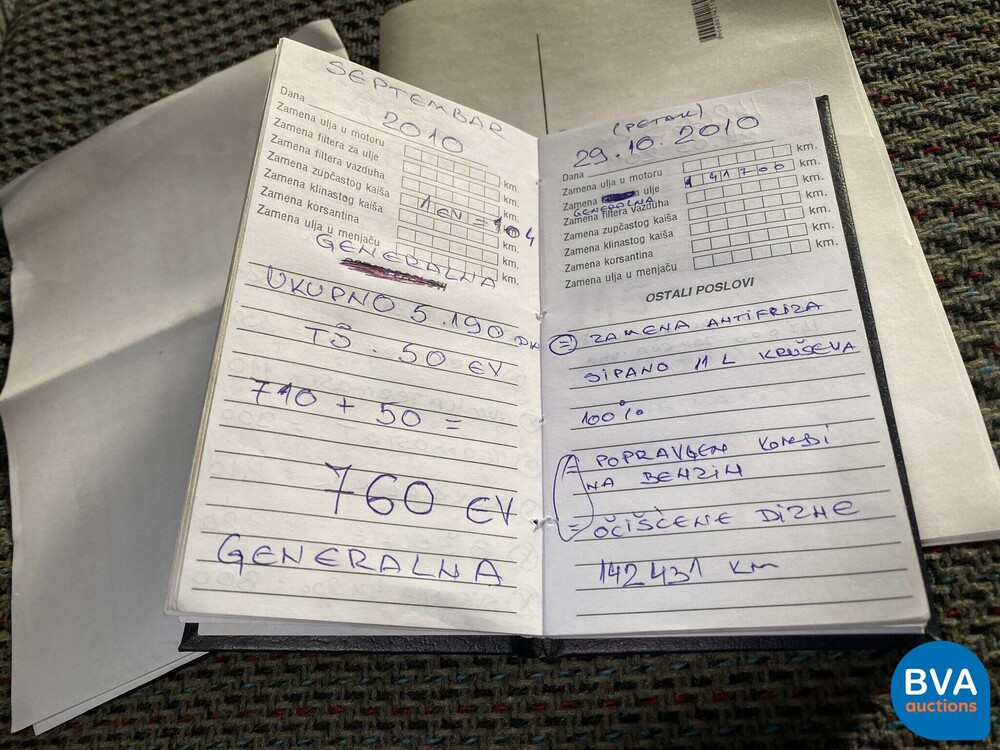 SEPTEMBAR
2010
Dana
Zamena ulja u motoru km.
Zamena filtera za ulje km.
Zamena filtera vazduha km.
Zamena zupčastog kaiša 1 EV = 104 km.
Zamena klinastog kaiša km.
Zamena korsantina km.
Zamena ulja u menjaču km.
GENERALNA
UKUPNO 5.190
TŠ. 50 EV
710 + 50 =
760 EV
GENERALNA
(PETAK)
29.10.2010
Dana
Zamena ulja u motoru km.
Zamena ulje 141700 km.
GENERALNA
Zamena filtera vazduha km.
Zamena zupčastog kaiša km.
Zamena klinastog kaiša km.
Zamena korsantina km.
Zamena ulja u menjaču km.
OSTALI POSLOVI
= ZAMENA ANTIFRIZA
SIPANO 11 L KRUŠEVA
100%
= POPRAVLJEN KOMBI
NA BENZIN
= OČIŠĆENE DIZNE
142431 km
BVA
auctions